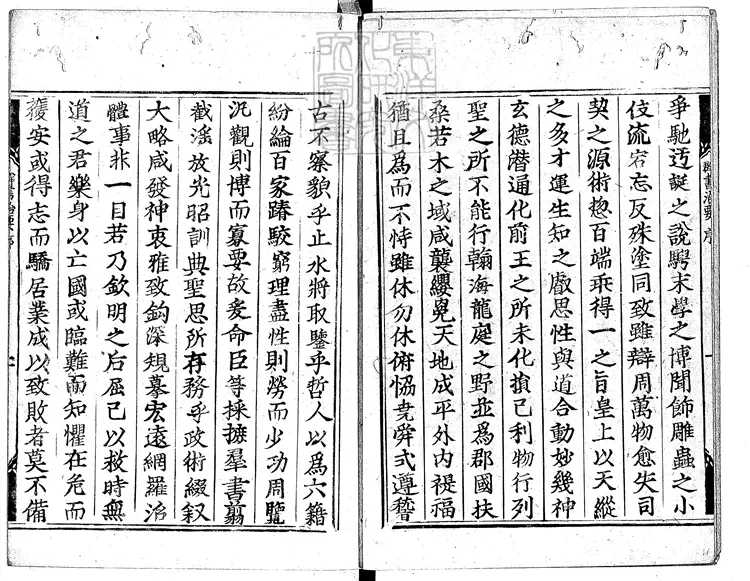 爭馳迃誕之說騁末學之博聞飾雕蟲之小
伎流宕忘反殊塗同致雖辯周萬物愈失司
契之源術惣百端乖得一之旨皇上以天縱
之多才運生知之叡思性與道合動妙幾神
玄德潛通化前王之所未化損己利物行列
聖之所不能行翰海龍庭之野並爲郡國扶
桑若木之域咸襲纓冕天地成平外內禔福
猶且爲而不恃雖休勿休俯恊堯舜式遵稽
古不察貌乎止水將取鑒乎哲人以爲六籍
紛綸百家踳駮窮理盡性則勞而少功周覽
汎觀則博而寡要故爰命臣等採摭羣書翦
截滛放光昭訓典聖思所存務乎政術綴叙
大略咸發神衷雅致鈎深規摹宏遠網羅治
體事非一目若乃欽明之后屈己以救時無
道之君樂身以亡國或臨難而知懼在危而
獲安或得志而驕居業成以致敗者莫不備